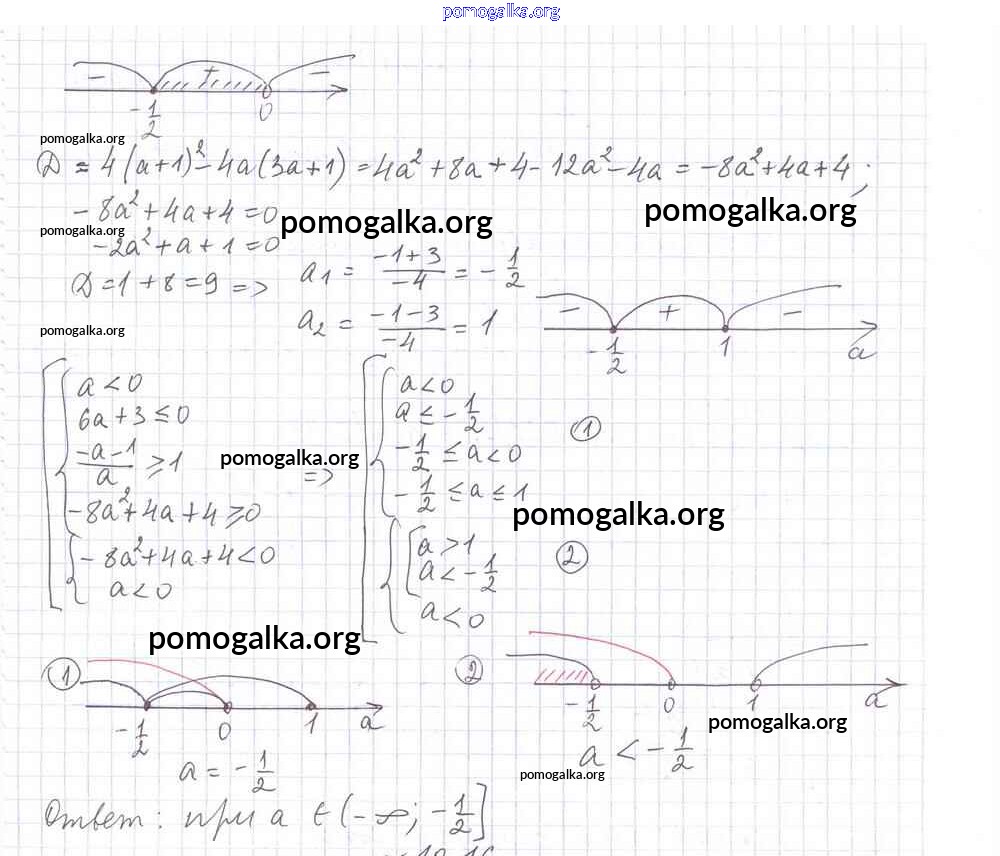 pomogalka.org
- + -
-1/2 0
pomogalka.org
D = 4(a+1)² - 4a(3a+1) = 4a² + 8a + 4 - 12a² - 4a = -8a² + 4a + 4 ;
-8a² + 4a + 4 = 0
pomogalka.org
pomogalka.org
pomogalka.org
-2a² + a + 1 = 0
D = 1 + 8 = 9 => a₁ = (-1+3)/(-4) = -1/2
a₂ = (-1-3)/(-4) = 1
pomogalka.org
- + -
-1/2 1 a
a < 0
6a + 3 ≤ 0
(-a-1)/a ≥ 1
-8a² + 4a + 4 ≥ 0
-8a² + 4a + 4 < 0
a < 0
pomogalka.org
=>
a < 0
a ≤ -1/2
-1/2 ≤ a < 0
-1/2 ≤ a ≤ 1
①
pomogalka.org
a > 1
a < -1/2
a < 0
②
pomogalka.org
①
-1/2 0 1 a
a = -1/2
②
-1/2 0 1 a
pomogalka.org
a < -1/2
pomogalka.org
Ответ: при a ∈ (-∞; -1/2]